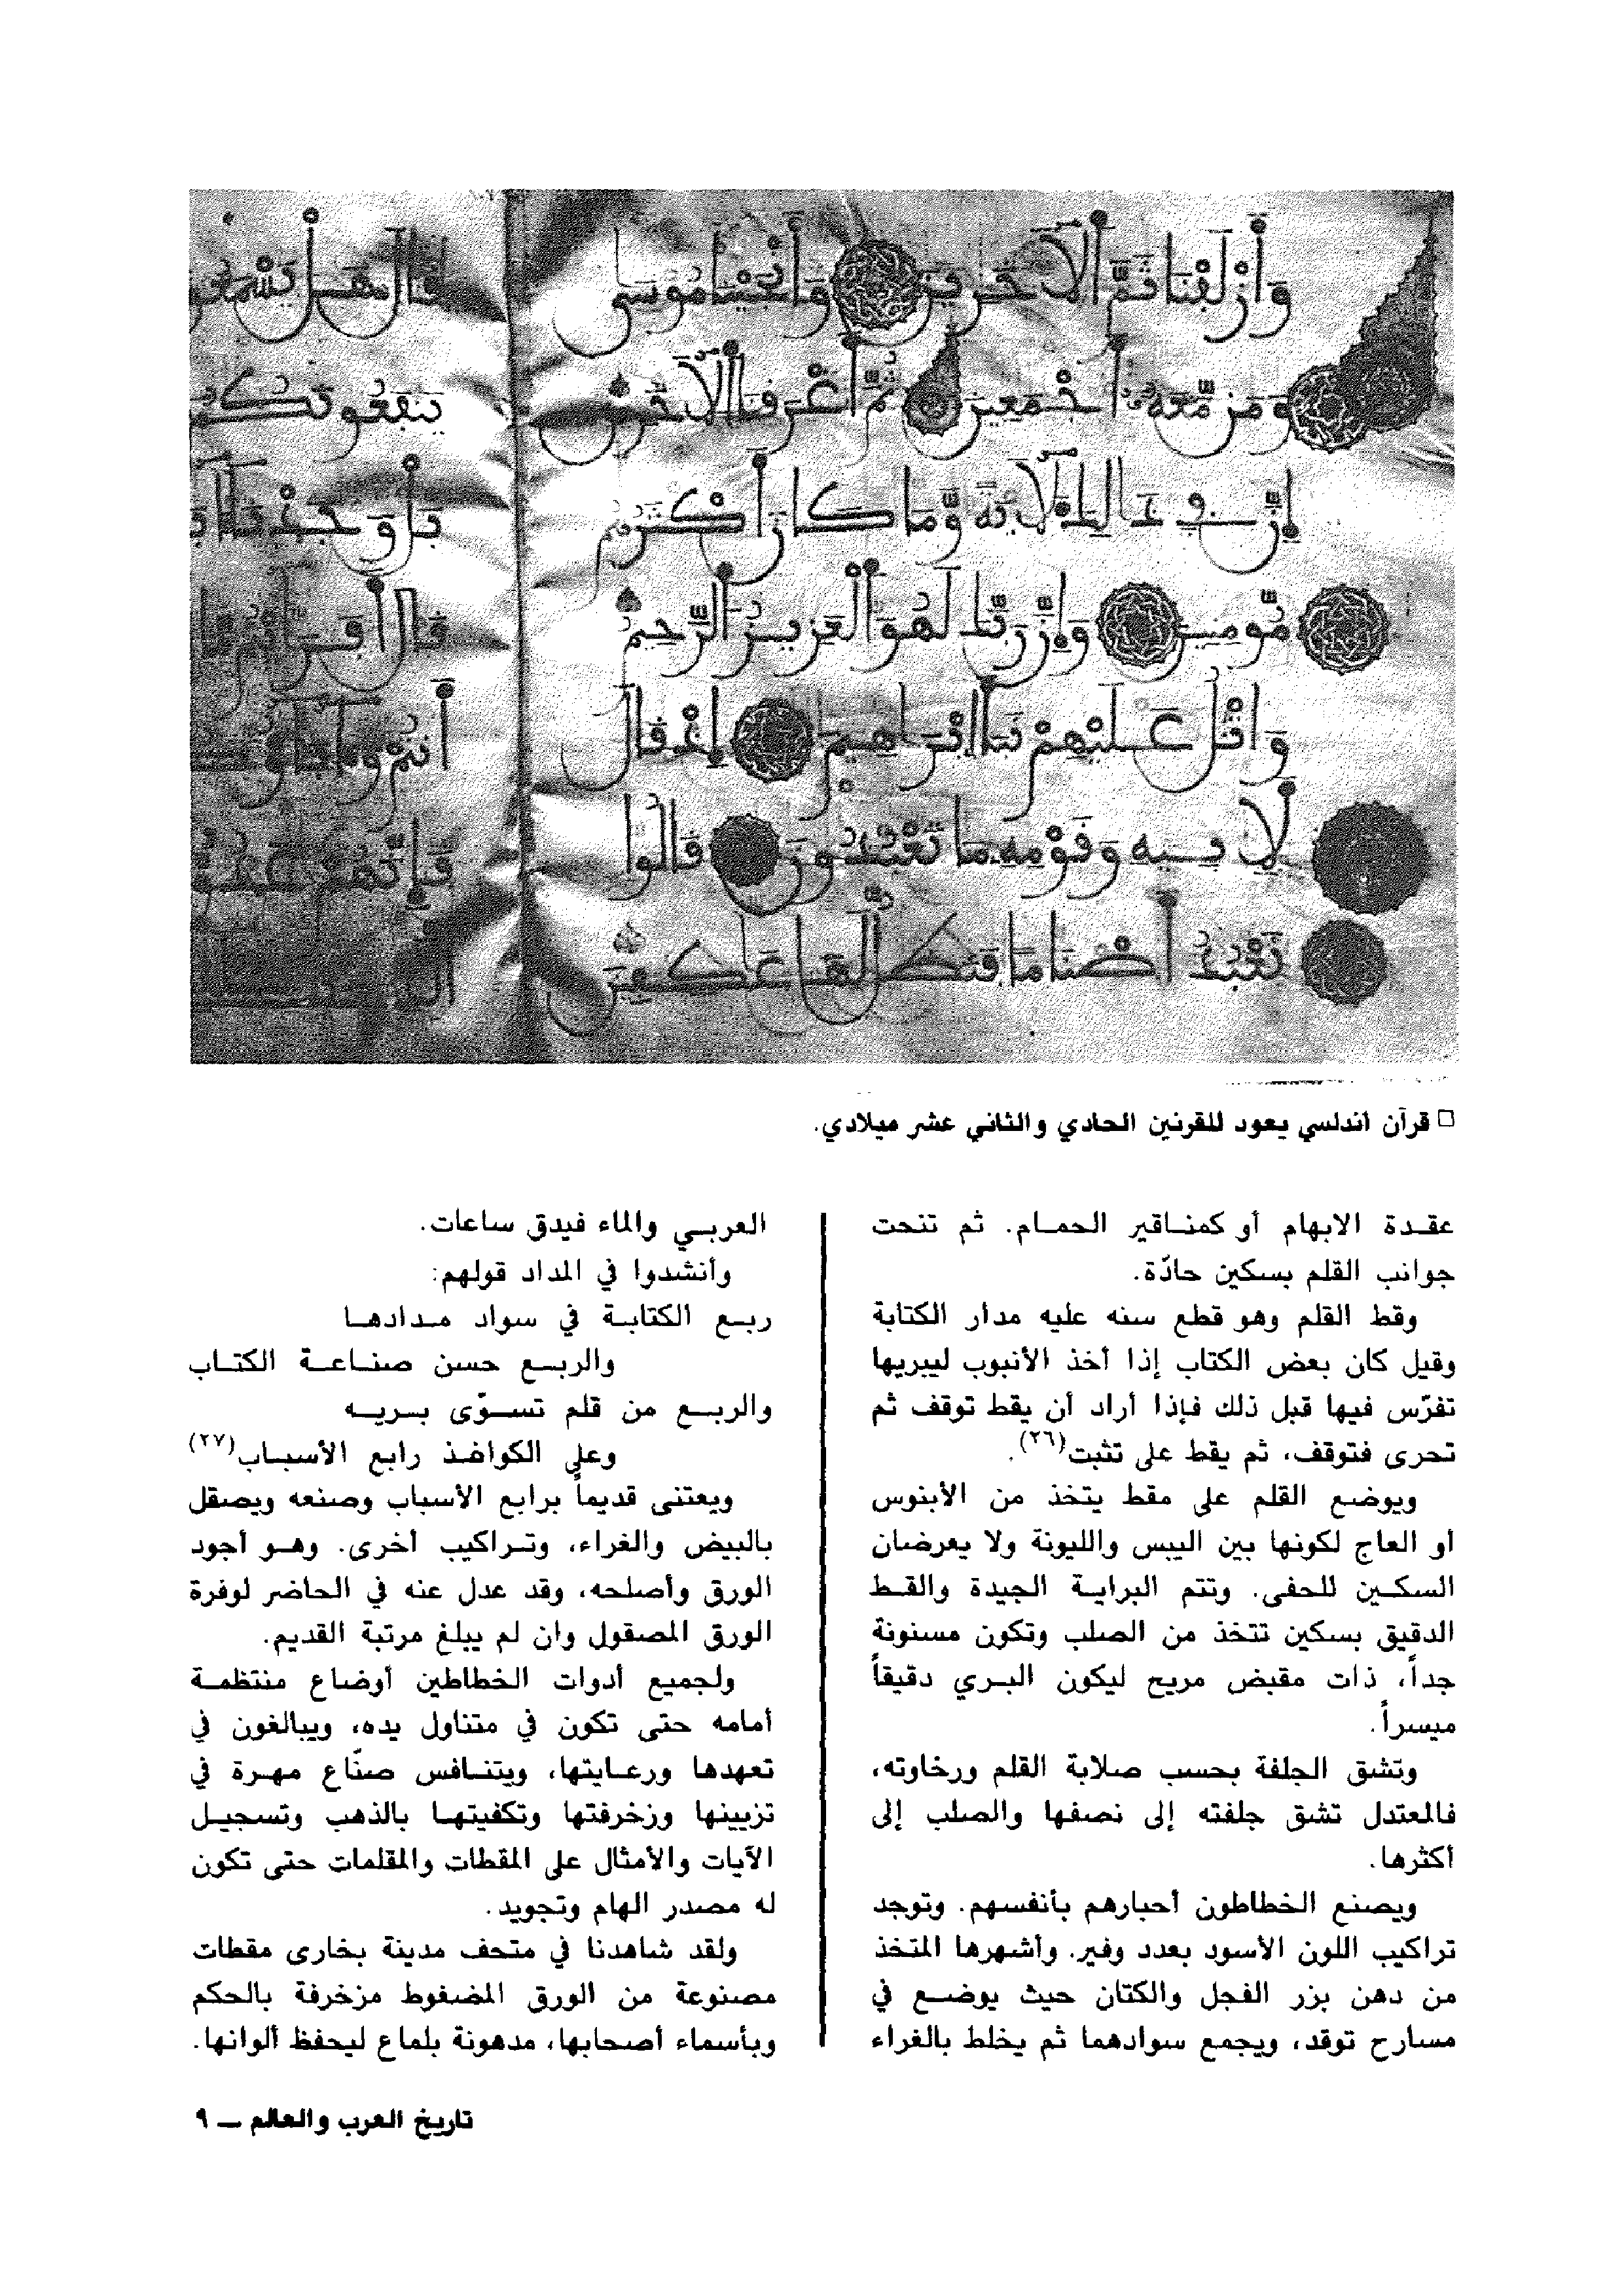 وَأَزْلَفْنَا ثَمَّ ٱلْآخَرِينَ وَأَنجَيْنَا مُوسَىٰ
وَمَن مَّعَهُ أَجْمَعِينَ ثُمَّ أَغْرَقْنَا ٱلْآخَرِينَ
إِنَّ فِي ذَٰلِكَ لَآيَةً وَمَا كَانَ أَكْثَرُهُم
مُّومِنِينَ وَإِنَّ رَبَّكَ لَهُوَ ٱلْعَزِيزُ ٱلرَّحِيمُ
وَاتْلُ عَلَيْهِمْ نَبَأَ إِبْرَاهِيمَ إِذْ قَالَ
لِأَبِيهِ وَقَوْمِهِ مَا تَعْبُدُونَ قَالُوا
نَعْبُدُ أَصْنَامًا فَنَظَلُّ لَهَا عَٰكِفِينَ
□ قرآن أندلسي يعود للقرنين الحادي والثاني عشر ميلادي.
عقدة الابهام أو كمناقير الحمام. ثم تنحت
جوانب القلم بسكين حادّة.
وقط القلم وهو قطع سنه عليه مدار الكتابة
وقيل كان بعض الكتاب إذا أخذ الأنبوب ليبريها
تفرّس فيها قبل ذلك فإذا أراد أن يقط توقف ثم
تحرى فتوقف، ثم يقط على تثبت(٢٦).
ويوضع القلم على مقط يتخذ من الأبنوس
أو العاج لكونها بين اليبس والليونة ولا يعرضان
السكين للحفى. وتتم البراية الجيدة والقط
الدقيق بسكين تتخذ من الصلب وتكون مسنونة
جداً، ذات مقبض مريح ليكون البري دقيقاً
ميسراً.
وتشق الجلفة بحسب صلابة القلم ورخاوته،
فالمعتدل تشق جلفته إلى نصفها والصلب إلى
أكثرها.
ويصنع الخطاطون أحبارهم بأنفسهم. وتوجد
تراكيب اللون الأسود بعدد وفير. وأشهرها المتخذ
من دهن بزر الفجل والكتان حيث يوضع في
مسارح توقد، ويجمع سوادهما ثم يخلط بالغراء
العربي والماء فيدق ساعات.
وأنشدوا في المداد قولهم:
ربع الكتابة في سواد مدادها
والربع حسن صناعة الكتاب
والربع من قلم تسوّى بريه
وعلى الكواغذ رابع الأسباب(٢٧)
ويعتنى قديماً برابع الأسباب وصنعه ويصقل
بالبيض والغراء، وتراكيب أخرى. وهو أجود
الورق وأصلحه، وقد عدل عنه في الحاضر لوفرة
الورق المصقول وان لم يبلغ مرتبة القديم.
ولجميع أدوات الخطاطين أوضاع منتظمة
أمامه حتى تكون في متناول يده، ويبالغون في
تعهدها ورعايتها، ويتنافس صنّاع مهرة في
تزيينها وزخرفتها وتكفيتها بالذهب وتسجيل
الآيات والأمثال على المقطات والمقلمات حتى تكون
له مصدر الهام وتجويد.
ولقد شاهدنا في متحف مدينة بخارى مقطات
مصنوعة من الورق المضغوط مزخرفة بالحكم
وبأسماء أصحابها، مدهونة بلماع ليحفظ ألوانها.
تاريخ العرب والعالم – ٩